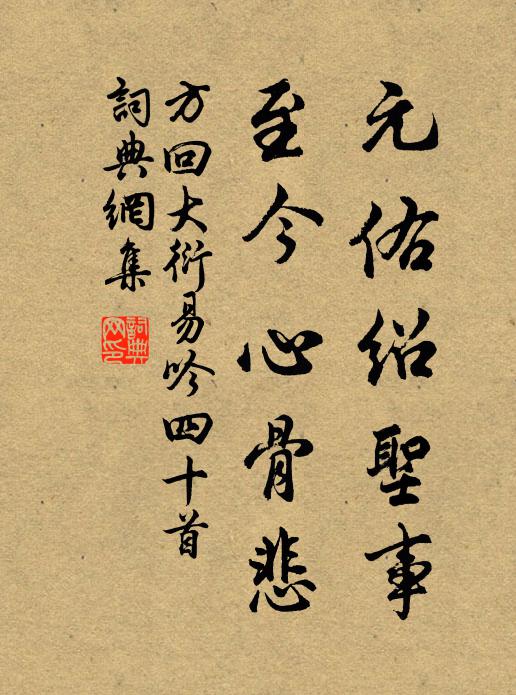 元佑绍聖事
至今心骨悲
方回大衍易吟四十首
詞典網集
詞典網印